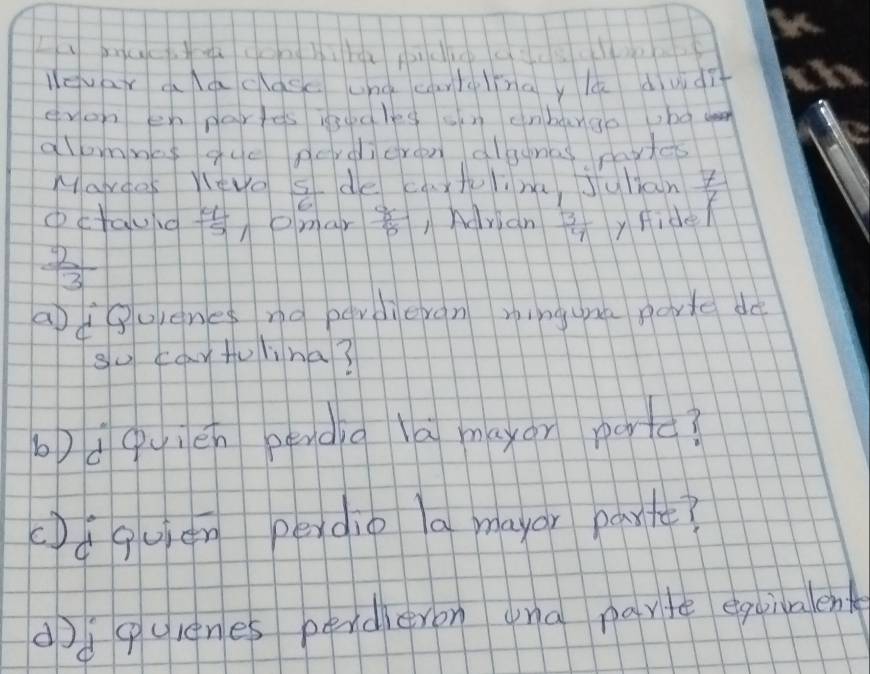 La maestra conchita pidio a sus alumnos
llevar a la clase una cartulina y la dividi
eron en partes iguales sin enbargo ubo
alumnos que perdieron algunas partes
Marcos llevo 5/6 de cartulina, Julian 7/7
Octavio 4/5, Omar 8/8, Adrian 3/4 y Fidel
2/3
a) ¿Quienes no perdieron ninguna parte de
su cartulina?
b) ¿Quién perdio la mayor parte?
c) ¿quien perdio la mayor parte?
d) ¿quienes perdieron una parte equivalente